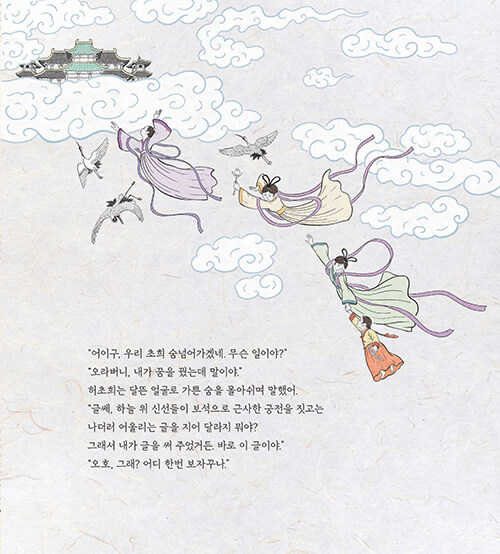 "어이구, 우리 초희 숨넘어가겠네. 무슨 일이야?"
"오라버니, 내가 꿈을 꿨는데 말이야."
허초희는 달뜬 얼굴로 가쁜 숨을 몰아쉬며 말했어.
"글쎄, 하늘 위 신선들이 보석으로 근사한 궁전을 짓고는
나더러 어울리는 글을 지어 달라지 뭐야?
그래서 내가 글을 써 주었거든. 바로 이 글이야."
"오호, 그래? 어디 한번 보자꾸나."